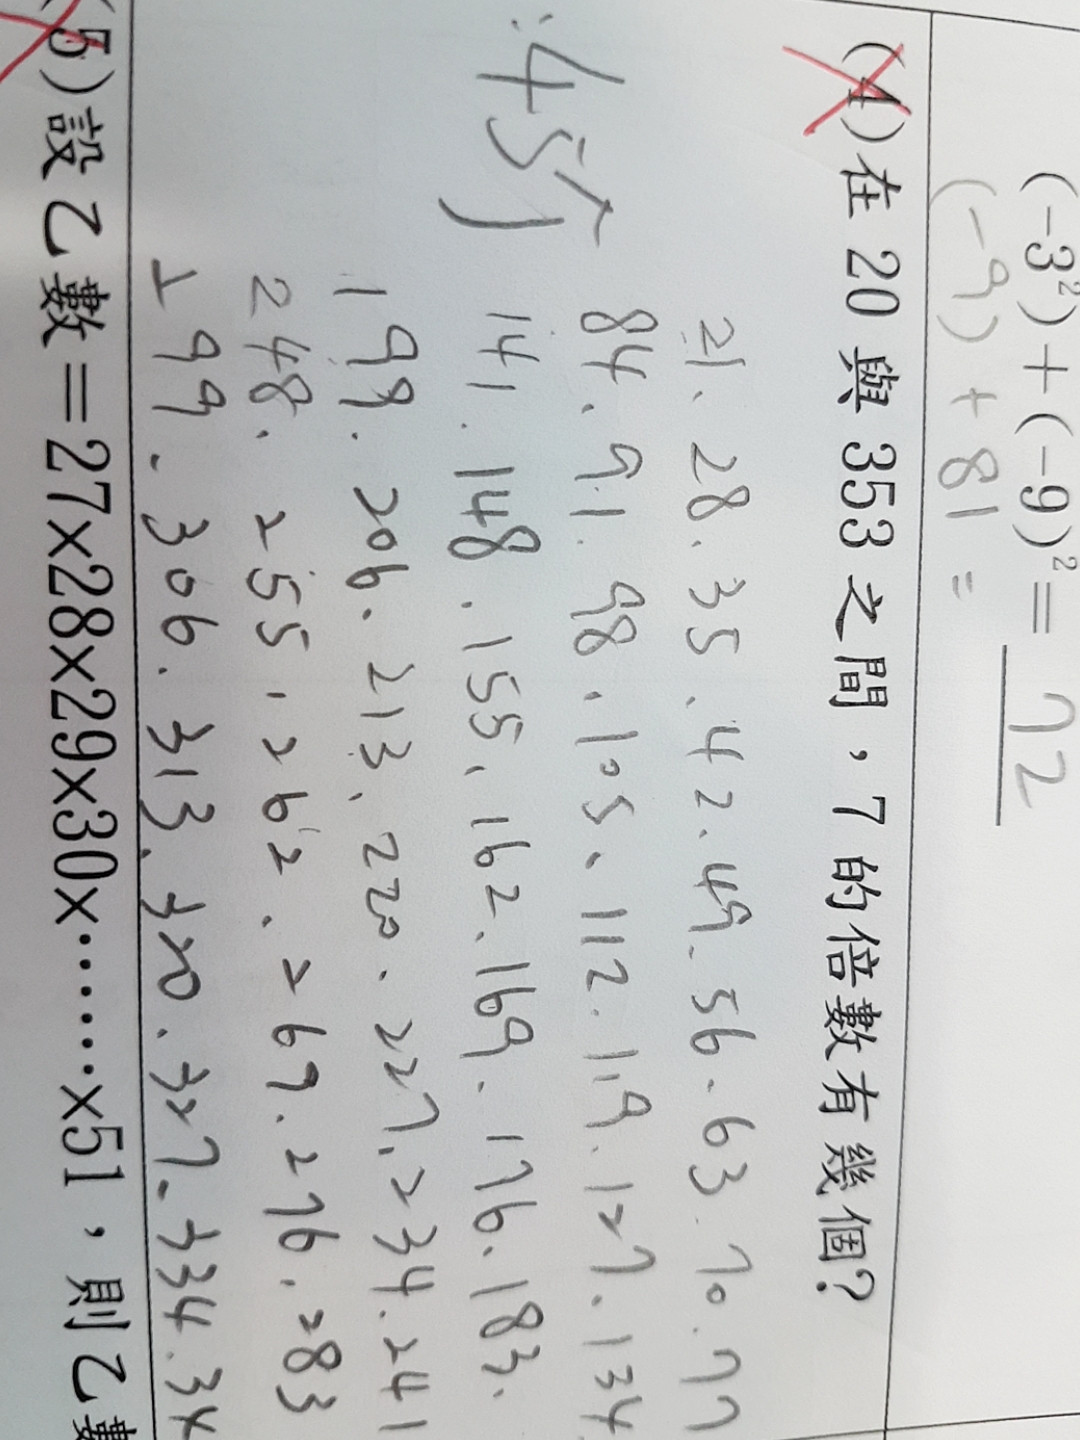 (-3²)+(-9)²=72
(-9)+81=
(4)在 20 與 353 之間，7 的倍數有幾個?
21.28.35.42.49.56.63.70.77
84.91.98.105.112.119.127.134
141.148.155.162.169.176.183.
199.206.213.220.227.234.241
248.255.262.269.276.283
299.306.313.320.327.334.34
45个
(5)設乙數=27×28×29×30×⋯⋯×51，則乙數